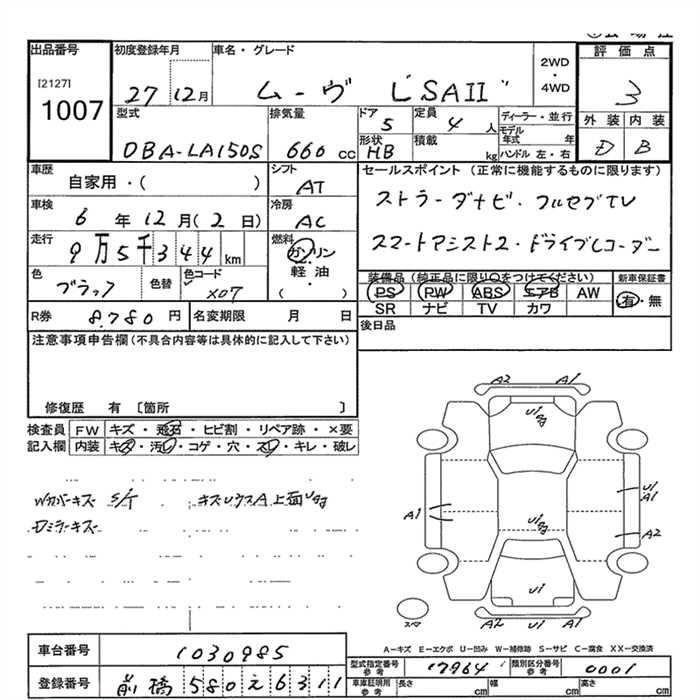 出品番号 初度登録年月 車名・グレード 2WD ・ 4WD 評価点
[2127] 1007 27 12月 ムーヴ L"SAII" 3
型式 排気量 ドア 定員 ディーラー・並行 外装 内装
DBA-LA150S 660 CC 5 4 人 モデル年式 年 D B
形状 HB 積載 kg ハンドル 左・右
車歴 自家用・( ) シフト AT セールスポイント (正常に機能するものに限ります)
車検 6 年 12 月 (2 日) 冷房 AC ストラーダナビ・フルセグTV
走行 9万5千344 km 燃料 ガソリン 軽油 ( ) スマートアシスト2・ドライブレコーダー
色 ブラック 色替 色コード X07 装備品 (純正品に限り〇をつけてください) 新車保証書
PS PW ABS エアB AW 有・無
SR ナビ TV カワ
R券 8,780 円 名変期限 月 日 後日品
注意事項申告欄 (不具合内容等は具体的に記入して下さい)
修復歴 有 [箇所 ]
検査員 FW キズ・飛石・ヒビ割・リペア跡・×要
記入欄 内装 キズ・汚レ・コゲ・穴・スレ・キレ・破レ
A2 A1
U1
A1 U1 A1
A2
U1
U1
A2 U1 A1
スペア
Wカバーキズ S/T
Dミラーキズ
A-キズ E-エクボ U-凹み W-補修跡 S-サビ C-腐食 XX-交換済
車台番号 1030985 型式指定番号 参考 17964 類別区分番号 参考 0001
登録番号 前橋 580 え 6311 車庫証明用 参考 長さ cm 幅 cm 高さ cm